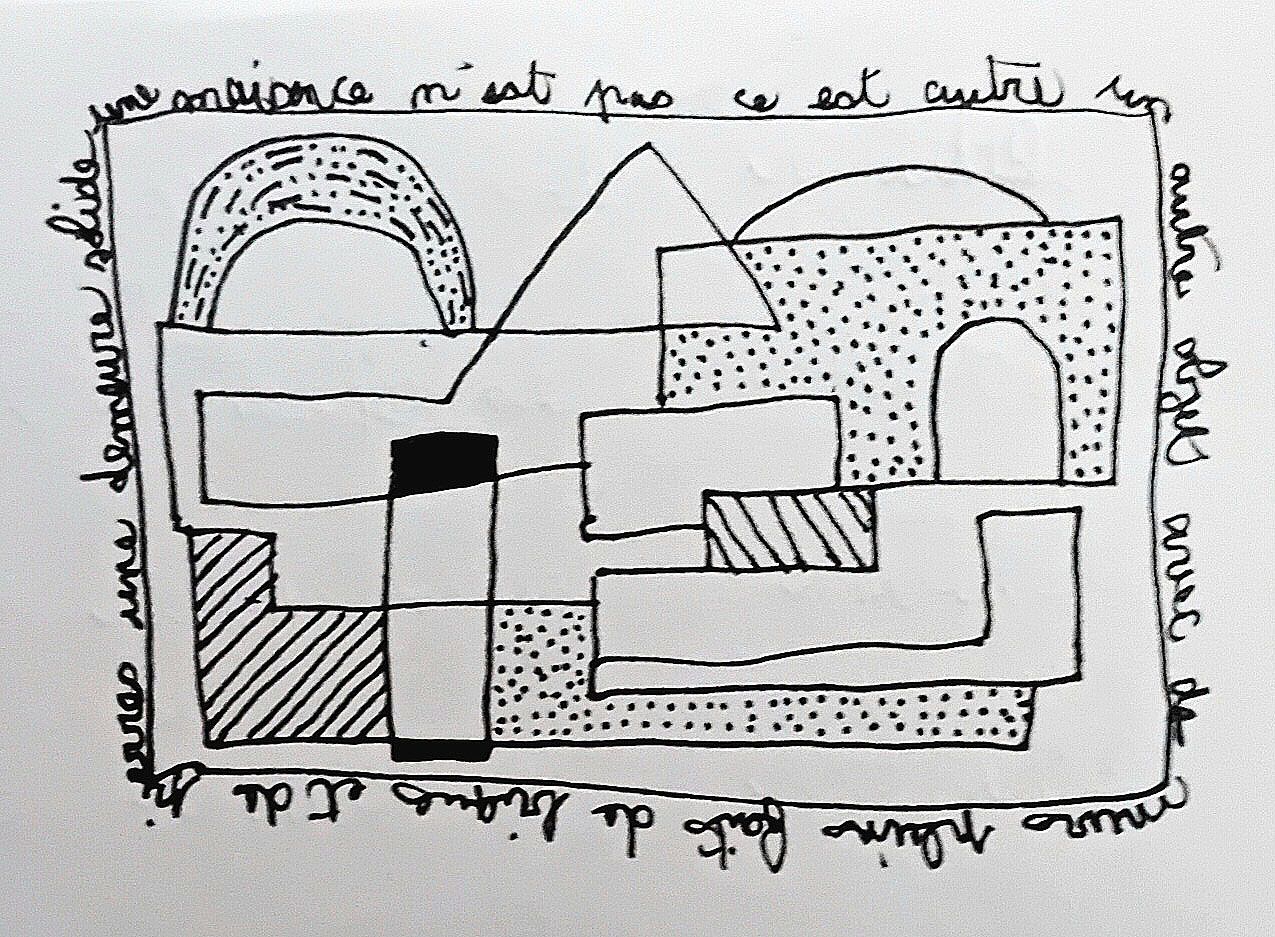 une maisonce n'est pas ce est autre un
autre objet avec de
murs pleins faits de briques et de pi
erres une demeure solide